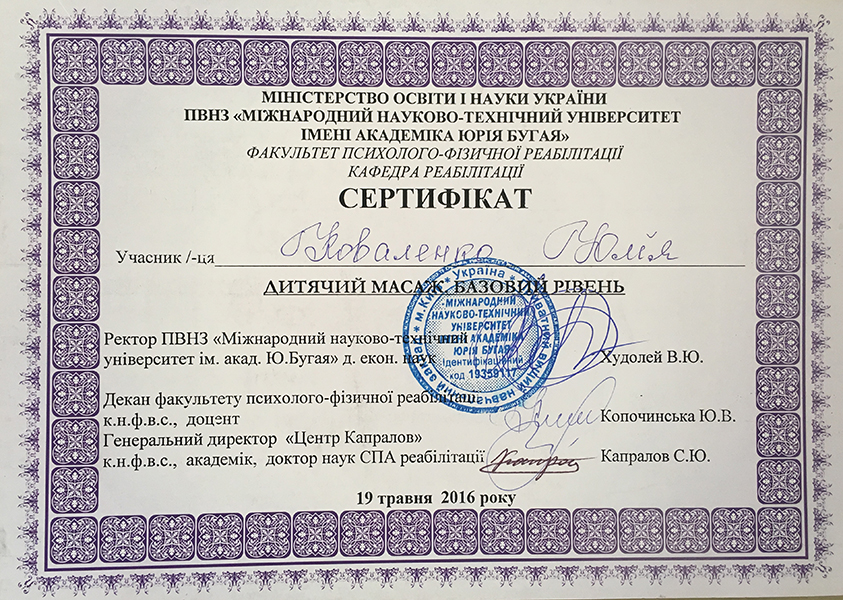 МІНІСТЕРСТВО ОСВІТИ І НАУКИ УКРАЇНИ
ПВНЗ «МІЖНАРОДНИЙ НАУКОВО-ТЕХНІЧНИЙ УНІВЕРСИТЕТ
ІМЕНІ АКАДЕМІКА ЮРІЯ БУГАЯ»
ФАКУЛЬТЕТ ПСИХОЛОГО-ФІЗИЧНОЇ РЕАБІЛІТАЦІЇ
КАФЕДРА РЕАБІЛІТАЦІЇ
СЕРТИФІКАТ
Учасник /-ця Коваленко Юлія
ДИТЯЧИЙ МАСАЖ. БАЗОВИЙ РІВЕНЬ
Ректор ПВНЗ «Міжнародний науково-технічний
університет ім. акад. Ю.Бугая» д. екон. наук Худолей В.Ю.
Декан факультету психолого-фізичної реабілітації
к.н.ф.в.с., доцент Копочинська Ю.В.
Генеральний директор «Центр Капралов»
к.н.ф.в.с., академік, доктор наук СПА реабілітації Капралов С.Ю.
19 травня 2016 року
Україна * Приватний вищий навчальний заклад * м.Київ *
МІЖНАРОДНИЙ
НАУКОВО-ТЕХНІЧНИЙ
УНІВЕРСИТЕТ
ІМЕНІ АКАДЕМІКА
ЮРІЯ БУГАЯ
Ідентифікаційний
код 19358117